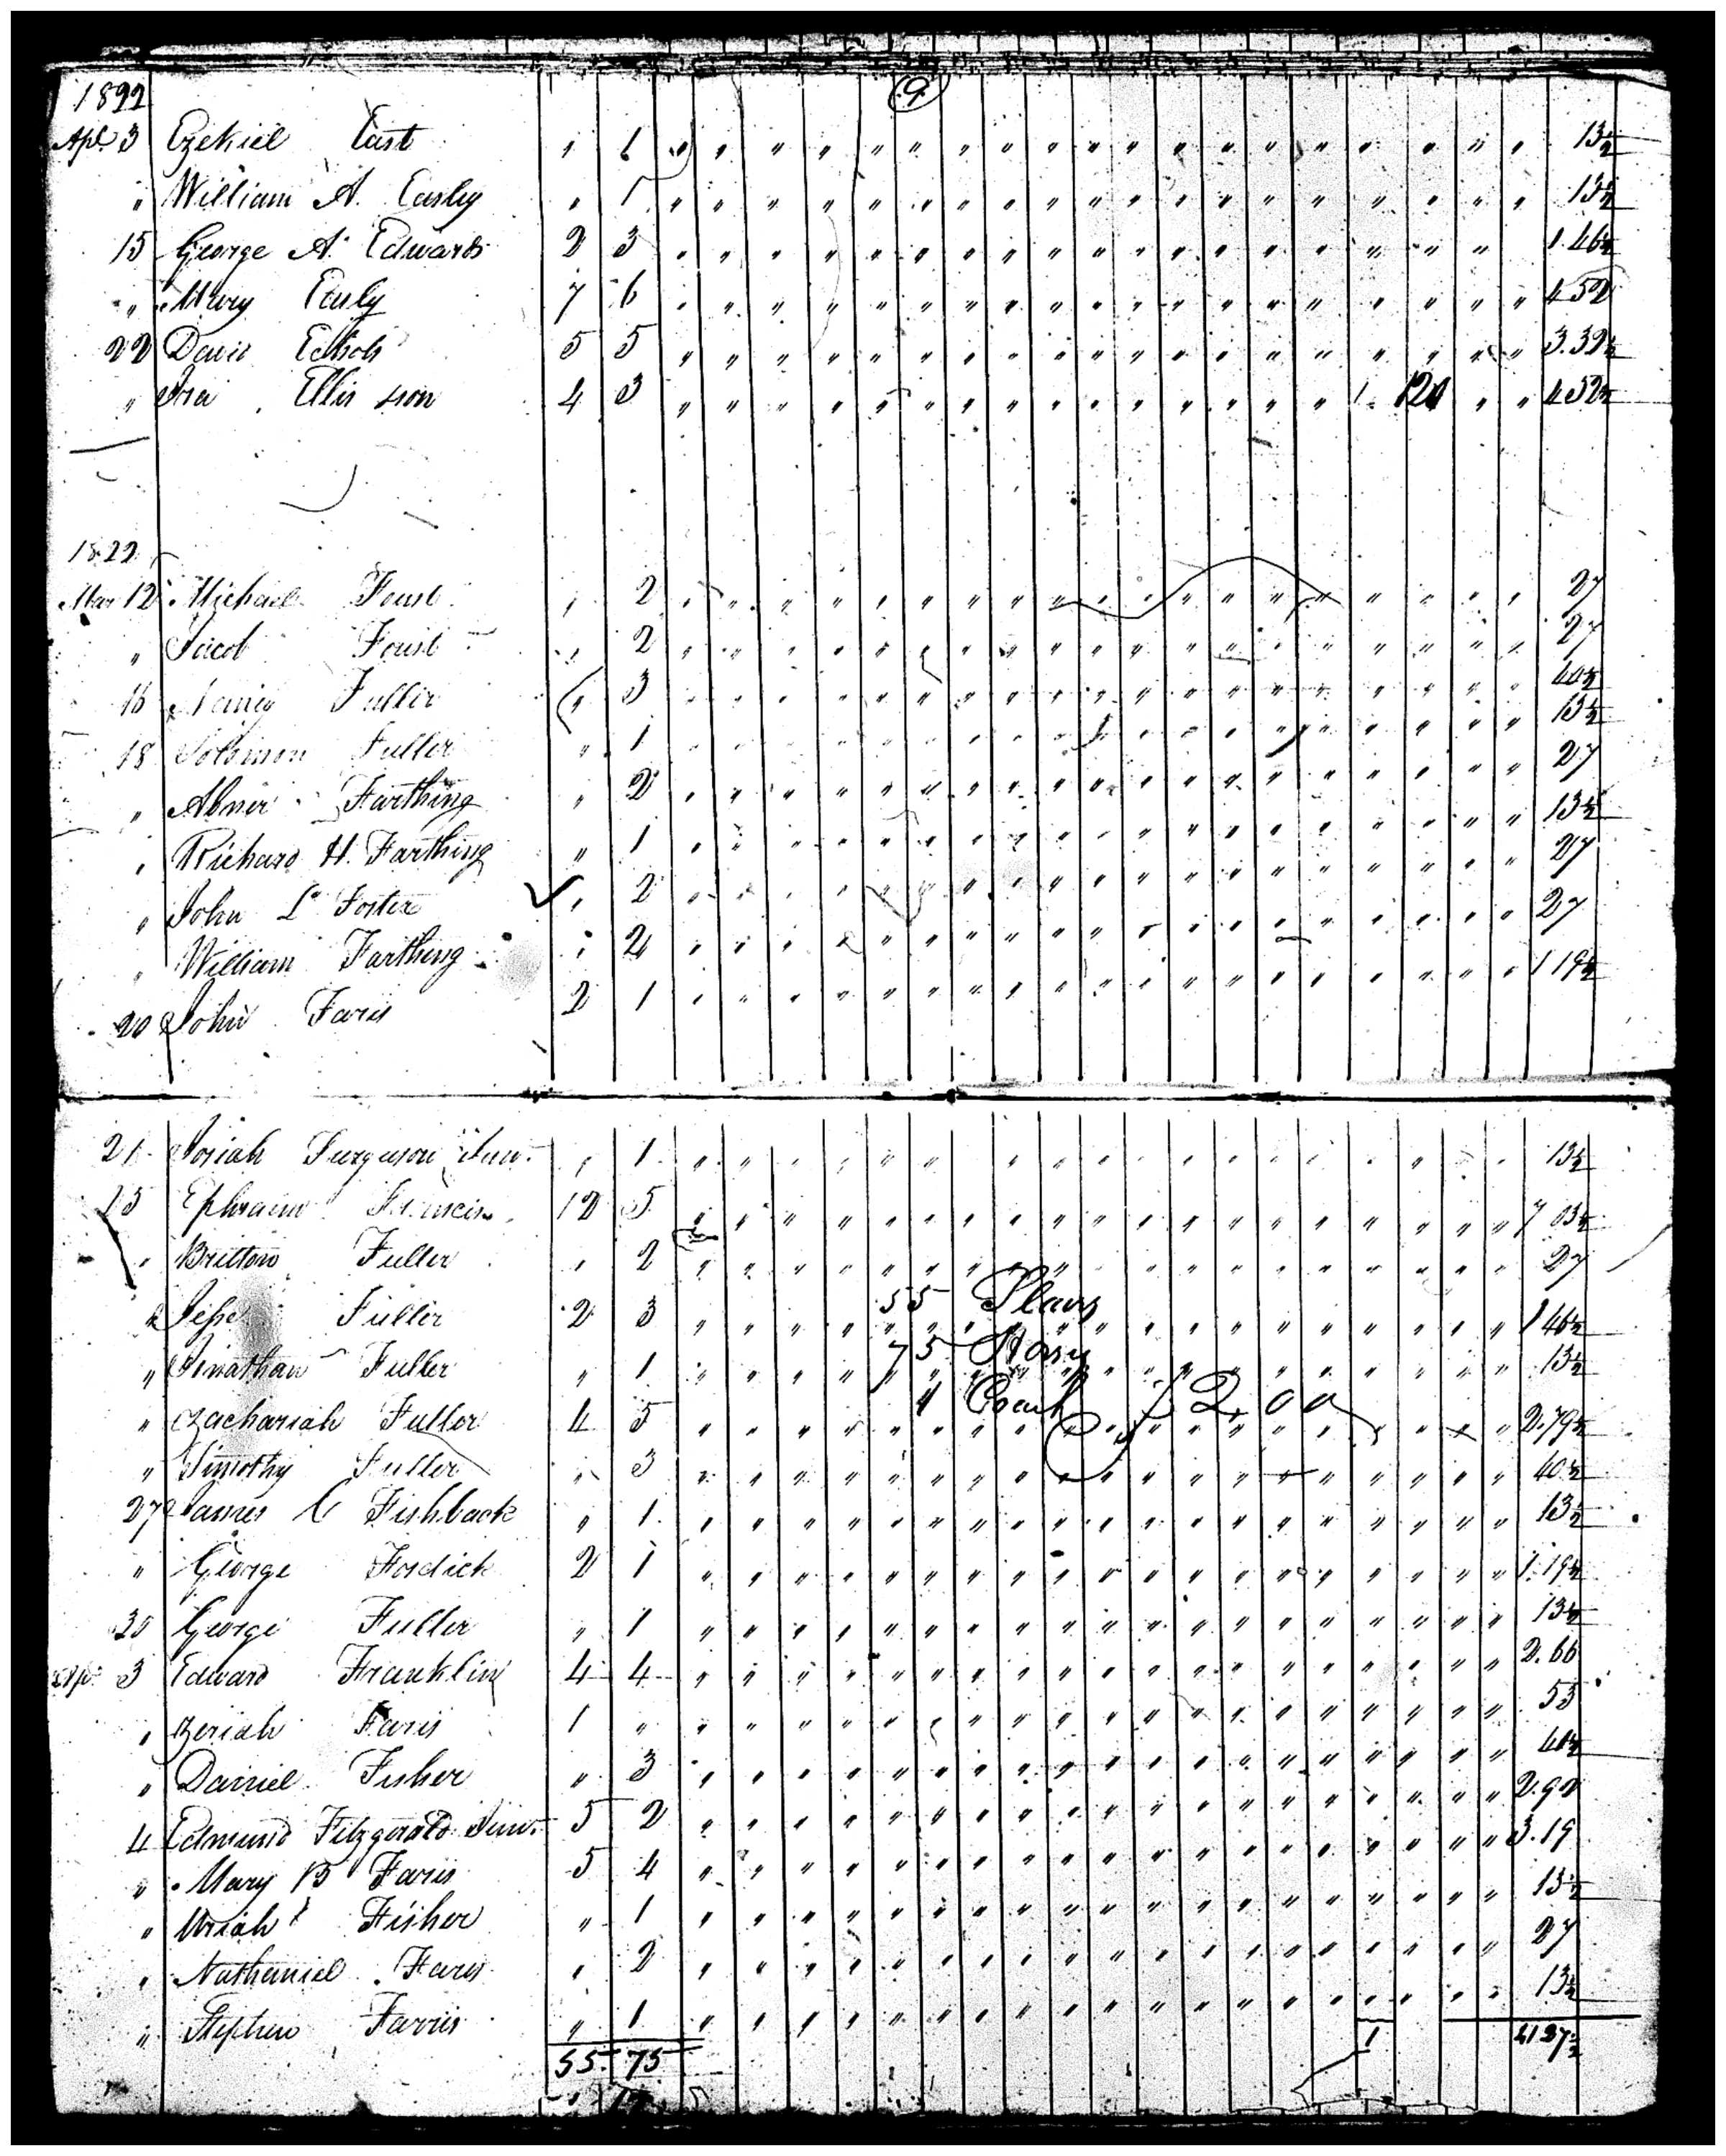 9
1822
Apl. 3 Ezekiel East " 1 " " " " " " " " " " " " " " " " " " " " 13½
" William A. Easley " 1 " " " " " " " " " " " " " " " " " " " " 13½
15 George A. Edwards 2 3 " " " " " " " " " " " " " " " " " " " 1.46½
" Mary Easly 7 6 " " " " " " " " " " " " " " " " " " " " 4 52
22 David Echols 5 5 " " " " " " " " " " " " " " " " " " " " 3.32½
" Ira Ellis son 4 3 " " " " " " " " " " " " " " " " 1 120 " " 4 52½
1822
Mar 12 Michael Foust " 2 " " " " " " " " " " " " " " " " " " " " 27
" Jacob Foust " 2 " " " " " " " " " " " " " " " " " " " " 27
16 Fuller " 3 " " " " " " " " " " " " " " " " " " " " 40½
18 Solomon Fuller " 1 " " " " " " " " " " " " " " " " " " " " 13½
" Abner Farthing " 2 " " " " " " " " " " " " " " " " " " " " 27
" Richard H. Farthing " 1 " " " " " " " " " " " " " " " " " " " " 13½
" John L Foster " 2 " " " " " " " " " " " " " " " " " " " " 27
" William Farthing " 2 " " " " " " " " " " " " " " " " " " " " 27
20 John Faris 2 1 " " " " " " " " " " " " " " " " " " " " 1 19½
21 Josiah Ferguson Junr. " 1 " " " " " " " " " " " " " " " " " " " 13½
25 Ephraim Francis 12 5 " " " " " " " " " " " " " " " " " " " " 7 03½
" Britton Fuller " 2 " " " " " " " " " " " " " " " " " " " " 27
55 Slavs
" Jesse Fuller 2 3 " " " " " " " " " " " " " " " " " " " " 1 46½
75 Hors
" Jonathan Fuller " 1 " " " " " " " " " " " " " " " " " " " " 13½
1 Coach $ 2,00
" Zachariah Fuller 4 5 " " " " " " " " " " " " " " " " " " " " 2.79½
" Timothy Fuller " 3 " " " " " " " " " " " " " " " " " " " " 40½
27 James C Fishback " 1 " " " " " " " " " " " " " " " " " " " " 13½
" George Fosdick 2 1 " " " " " " " " " " " " " " " " " " " " 1.19½
30 George Fuller " 1 " " " " " " " " " " " " " " " " " " " " 13½
Apl. 3 Edward Franklin 4 4 " " " " " " " " " " " " " " " " " " " " 2.66
" Beriah Faris 1 " " " " " " " " " " " " " " " " " " " " " 53
" Daniel Fisher " 3 " " " " " " " " " " " " " " " " " " " " 40½
4 Edmund Fitzgerald Junr. 5 2 " " " " " " " " " " " " " " " " " " " " 2.92
" Mary B Faris 5 4 " " " " " " " " " " " " " " " " " " " " 3.19
" Uriah Fisher " 1 " " " " " " " " " " " " " " " " " " " " 13½
" Nathaniel Faris " 2 " " " " " " " " " " " " " " " " " " " " 27
" Stephen Farris " 1 " " " " " " " " " " " " " " " " " " " " 13½
55 75 1